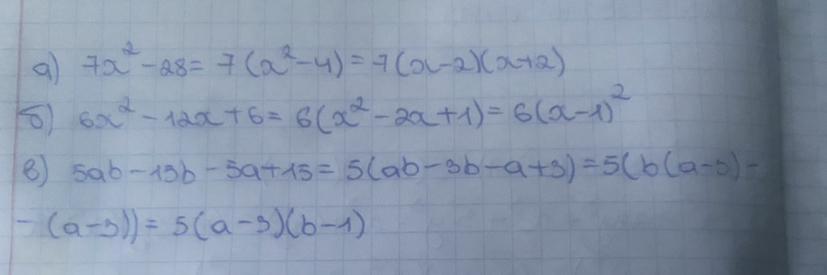 а) 7x² - 28 = 7(x² - 4) = 7(x-2)(x+2)
б) 6x² - 12x + 6 = 6(x² - 2x + 1) = 6(x-1)²
в) 5ab - 15b - 5a + 15 = 5(ab - 3b - a + 3) = 5(b(a-3) -
- (a-3)) = 5(a-3)(b-1)